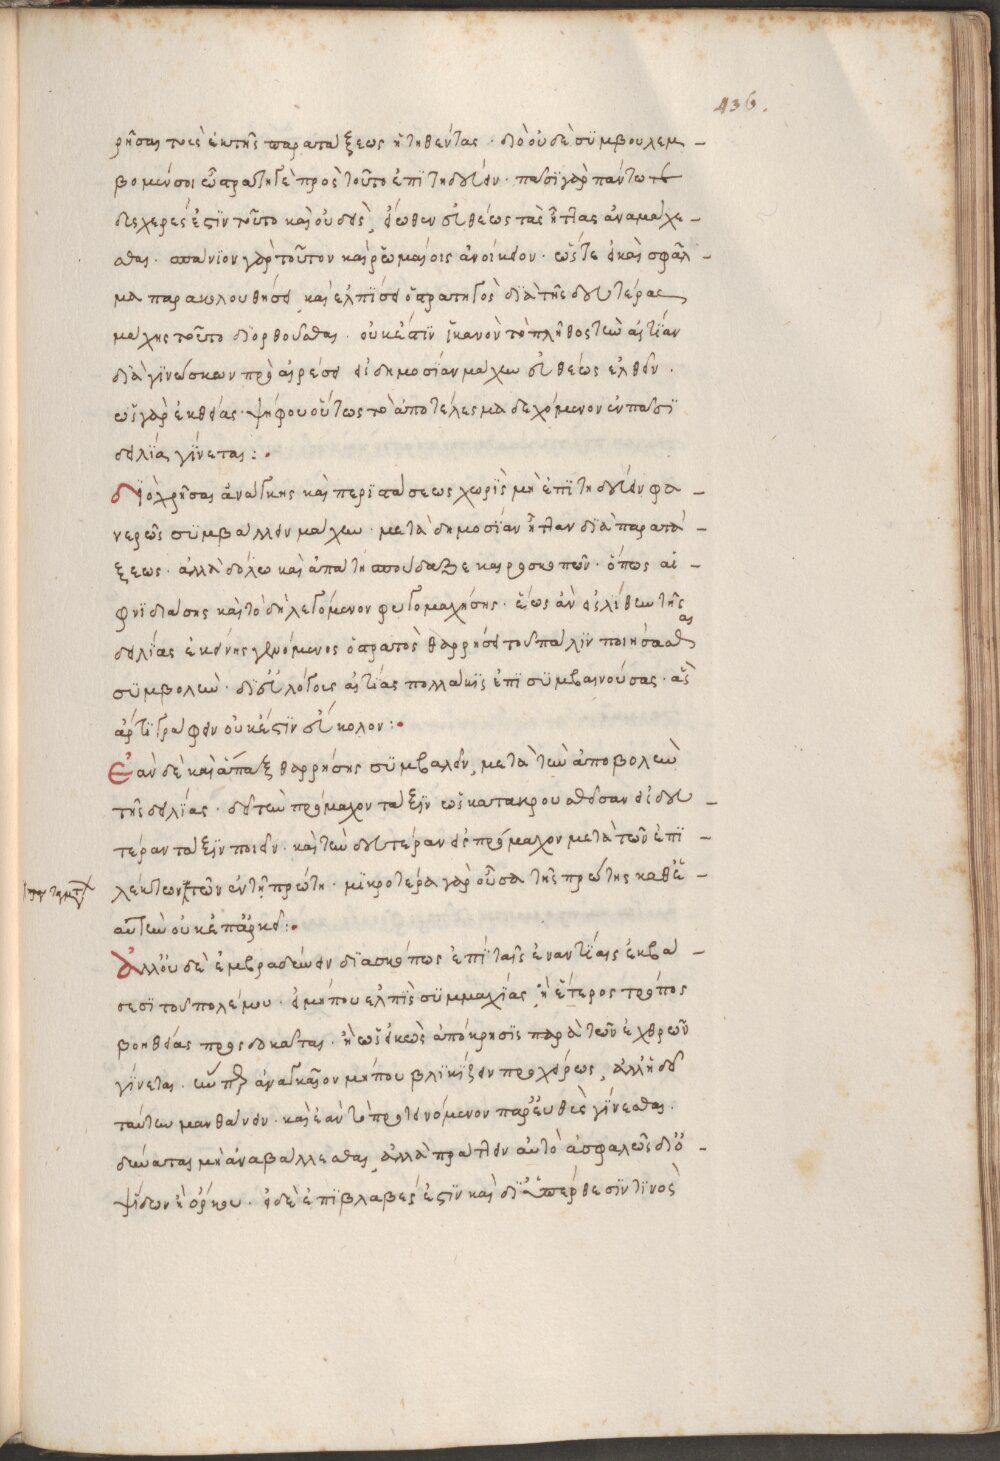 436.
ρῆσαι τοῖς ἐκ τῆς παρατάξεως ἡττηθέντας· διὸ οὐδὲ συμβουλεμ–
βομέν σοι ὦ στρατηγὲ πρὸς τοῦτο ἐπιτηδεύειν· πᾶσι γὰρ πάντῃ
δυσχερές ἐστιν τοῦτο καὶ οὐδεὶς εἴωθεν εὐθέως τὰς ἥττας ἀναμάχε–
σθαι· σπάνιον γὰρ τοῦτον καὶ ῥωμαίοις ἀνοίκειον· ὥστε εἰ καὶ σφάλ–
μα παρακολουθήσει καὶ ἐλπίσει ὁ στρατηγὸς διὰ τῆς δευτέρας
μάχης τοῦτο διορθοῦσθαι· οὐκ ἔστιν ἱκανὸν τὸ πλῆθος τὴν αἰτίαν
διαγινώσκων προαιρέσει εἰς δημοσίαν μάχην εὐθέως ἐλθεῖν·
ὡς γὰρ ἐκ θείας ψήφου οὕτως τὸ ἀποτέλεσμα δεχόμενον ἐν πάσῃ
δειλίᾳ γίνεται:·
Δίχα χρῆσαι ἀνάγκης καὶ περιστάσεως χωρὶς μὴ ἐπιτηδεύειν φα–
νερῶς συμβάλλειν μάχην· μετὰ δημοσίαν ἧτταν διὰ παρατά–
ξεως· ἀλλὰ δόλῳ καὶ ἀπάτῃ σπούδαζε καιροσκοπῶν· ὅπως αἰ–
φνιδιάσῃς καὶ τὸ δὴ λεγόμενον φυγομαχήσῃς· ἕως ἂν εἰς λήθην τῆς
δειλίας ἐκείνης γενόμενος ὁ στρατὸς θαρρήσει τοῦ πάλιν ποιήσασθαι
συμβολήν· δι᾽ εὐλόγους αἰτίας πολλάκις ἐπισυμβαινούσας· ἃς
ἄρτι γράφειν οὐκ ἔστιν εὔκολον:·
Ἐὰν δὲ καὶ ἅπαξ θαρρήσῃς συμβαλεῖν, μετὰ τὴν ἀποβολὴν
τῆς δειλίας· δεῖ τὴν πρόμαχον τάξιν ὡς κατακρουσθεῖσαν εἰς δευ–
τέραν τάξιν ποιεῖν· καὶ τὴν δευτέραν εἰς πρόμαχον μετὰ τῶν ἐπι–
λέκτων τῶν ἐν τῇ πρώτῃ· μικροτέρα γὰρ οὖσα τῆς πρώτης καθ᾽ ἑ–
αυτὴν οὐκ ἐπαρκεῖ:·
Ἀλλ᾽ οὐδὲ ἐμβραδύνειν διασκόπως ἐπὶ ταῖς ἐναντίαις ἐκβά–
σεσι τοῦ πολέμου· εἰ μήπου ἐλπὶς συμμαχίας ἢ ἕτερος τρόπος
βοηθείας προσδοκᾶται· ἢ ὡς εἰκὼς ἀπόκρισις παρὰ τῶν ἐχθρῶν
γίνεται· ἣν περ ἀναγκαῖον μήπου βλικίζειν προχείρως, ἀλλ᾽ ἡ δι
ταύτην μανθάνειν· καὶ ἐὰν τὸ προτεινόμενον παρευθὺς γίνεσθαι
δύναται μὴ ἀναβάλλεσθαι, ἀλλὰ πράττειν αὐτὸ ἀσφαλῶς δι᾽ ὀ–
ψίδων ἢ ὅρκου· εἰ δὲ ἐπιβλαβές ἐστιν καὶ δι᾽ ὑπέρθεσίν τινος